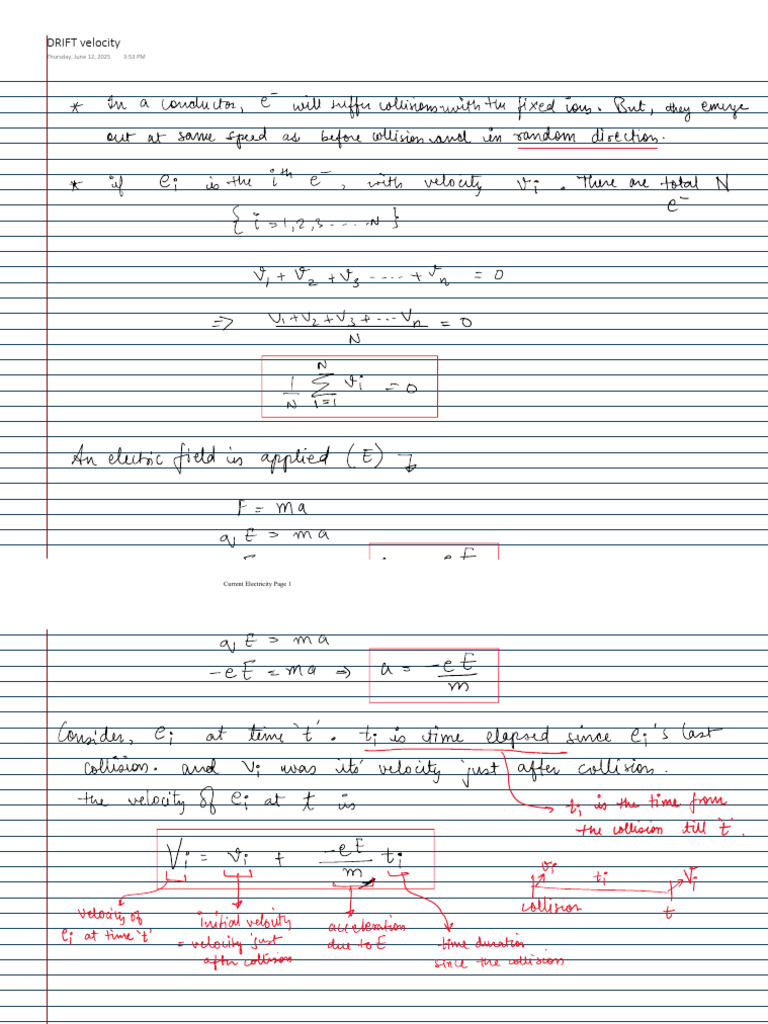 DRIFT velocity
Thursday, June 12, 2025 3:53 PM
* In a conductor, e⁻ will suffer collisions with the fixed ions. But, they emerge
out at same speed as before collision and in random direction.
* if eᵢ is the iᵗʰ e⁻, with velocity vᵢ. There are total N
e⁻
{i = 1, 2, 3 ..... N}
v₁ + v₂ + v₃ ...... + vₙ = 0
⇒ (v₁ + v₂ + v₃ + ... vₙ)/N = 0
1/N ∑ᵢ₌₁ᴺ vᵢ = 0
An electric field is applied (E) ↴
F = ma
qE = ma
Current Electricity Page 1
qE = ma
-eE = ma ⇒ a = -eE/m
Consider, eᵢ at time 't'. tᵢ is time elapsed since eᵢ's last
collision. and vᵢ was its' velocity just after collision.
the velocity of eᵢ at t is
tᵢ is the time from
the collision till 't'.
Vᵢ = vᵢ + (-eE/m) tᵢ
vᵢ tᵢ Vᵢ
collision t
velocity of
eᵢ at time 't'
initial velocity
= velocity just
after collision
acceleration
due to E
time duration
since the collision